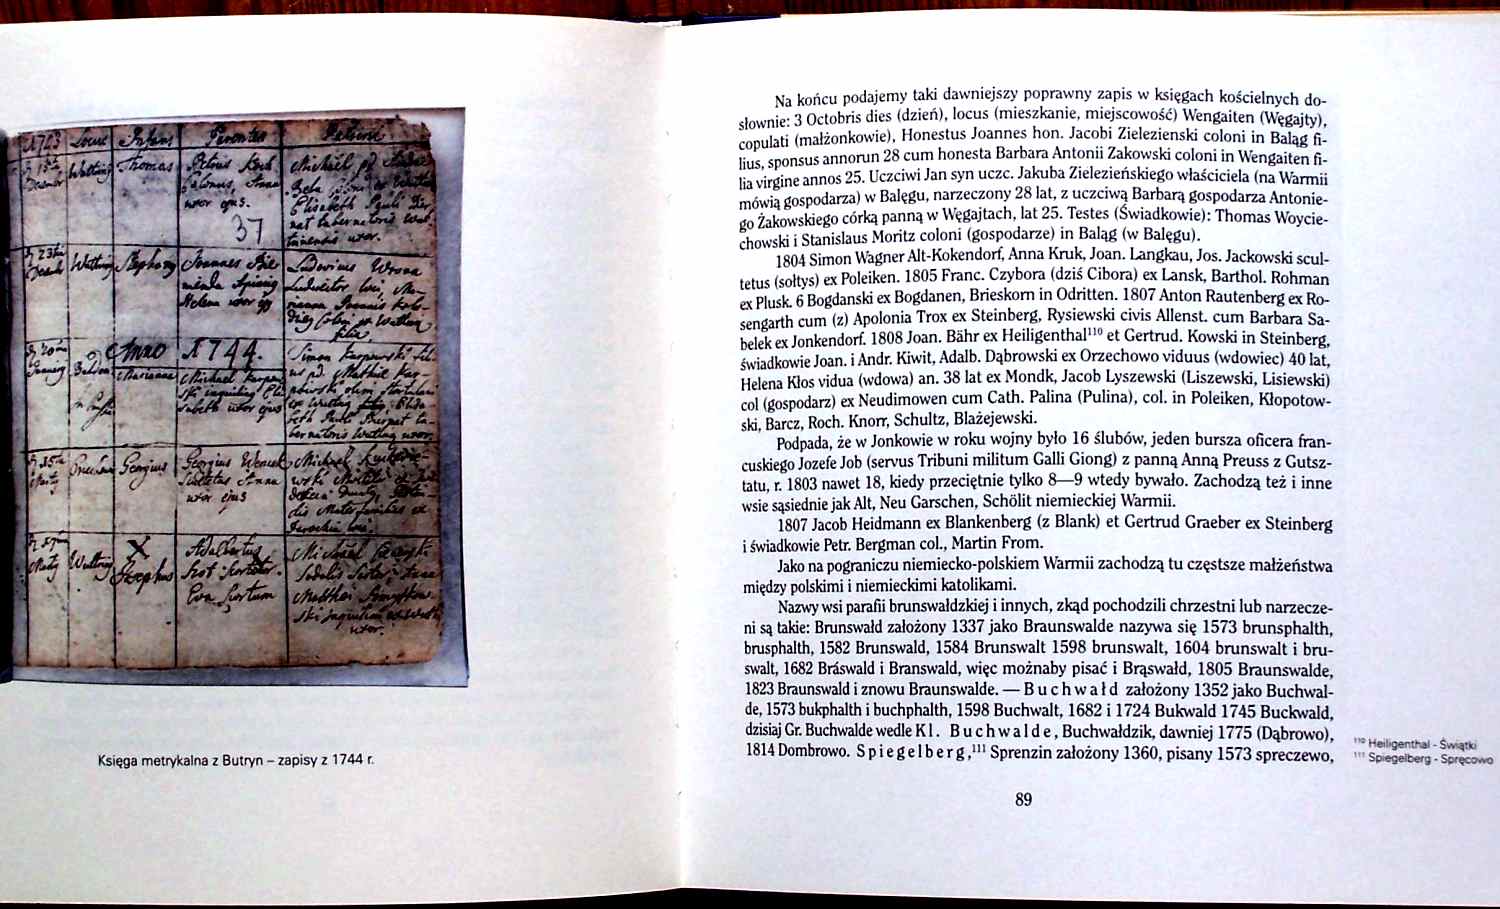 1743 Locus Infans Parentes Patrini
Thomas Petrus
uxor ejus.
37
Joannes
Helena uxor ejus
Anno 1744.
Marianna Michael
Georgius Georgius
uxor ejus
X
Josephus
Księga metrykalna z Butryn – zapisy z 1744 r.
Na końcu podajemy taki dawniejszy poprawny zapis w księgach kościelnych do-
słownie: 3 Octobris dies (dzień), locus (mieszkanie, miejscowość) Wengaiten (Węgajty),
copulati (małżonkowie), Honestus Joannes hon. Jacobi Zielezienski coloni in Baląg fi-
lius, sponsus annorun 28 cum honesta Barbara Antonii Zakowski coloni in Wengaiten fi-
lia virgine annos 25. Uczciwi Jan syn uczc. Jakuba Zielezieńskiego właściciela (na Warmii
mówią gospodarza) w Balęgu, narzeczony 28 lat, z uczciwą Barbarą gospodarza Antonie-
go Żakowskiego córką panną w Węgajtach, lat 25. Testes (Świadkowie): Thomas Woycie-
chowski i Stanislaus Moritz coloni (gospodarze) in Baląg (w Balęgu).
1804 Simon Wagner Alt-Kokendorf, Anna Kruk, Joan. Langkau, Jos. Jackowski scul-
tetus (sołtys) ex Poleiken. 1805 Franc. Czybora (dziś Cibora) ex Lansk, Barthol. Rohman
ex Plusk. 6 Bogdanski ex Bogdanen, Brieskorn in Odritten. 1807 Anton Rautenberg ex Ro-
sengarth cum (z) Apolonia Trox ex Steinberg, Rysiewski civis Allenst. cum Barbara Sa-
belek ex Jonkendorf. 1808 Joan. Bähr ex Heiligenthal¹¹⁰ et Gertrud. Kowski in Steinberg,
świadkowie Joan. i Andr. Kiwit, Adalb. Dąbrowski ex Orzechowo viduus (wdowiec) 40 lat,
Helena Kłos vidua (wdowa) an. 38 lat ex Mondk, Jacob Lyszewski (Liszewski, Lisiewski)
col (gospodarz) ex Neudimowen cum Cath. Palina (Pulina), col. in Poleiken, Kłopotow-
ski, Barcz, Roch. Knorr, Schultz, Blażejewski.
Podpada, że w Jonkowie w roku wojny było 16 ślubów, jeden bursza oficera fran-
cuskiego Jozefe Job (servus Tribuni militum Galli Giong) z panną Anną Preuss z Gutsz-
tatu, r. 1803 nawet 18, kiedy przeciętnie tylko 8—9 wtedy bywało. Zachodzą też i inne
wsie sąsiednie jak Alt, Neu Garschen, Schölit niemieckiej Warmii.
1807 Jacob Heidmann ex Blankenberg (z Blank) et Gertrud Graeber ex Steinberg
i świadkowie Petr. Bergman col., Martin From.
Jako na pograniczu niemiecko-polskiem Warmii zachodzą tu częstsze małżeństwa
między polskimi i niemieckimi katolikami.
Nazwy wsi parafii brunswałdzkiej i innych, zkąd pochodzili chrzestni lub narzecze-
ni są takie: Brunswałd założony 1337 jako Braunswalde nazywa się 1573 brunsphalth,
brusphalth, 1582 Brunswald, 1584 Brunswalt 1598 brunswalt, 1604 brunswalt i bru-
swalt, 1682 Bráswald i Branswald, więc możnaby pisać i Brąswałd, 1805 Braunswalde,
1823 Braunswald i znowu Braunswalde. — Buchwałd założony 1352 jako Buchwal-
de, 1573 bukphalth i buchphalth, 1598 Buchwalt, 1682 i 1724 Bukwald 1745 Buckwald,
dzisiaj Gr. Buchwalde wedle Kl. Buchwalde, Buchwałdzik, dawniej 1775 (Dąbrowo),
1814 Dombrowo. Spiegelberg,¹¹¹ Sprenzin założony 1360, pisany 1573 spreczewo,
¹¹⁰ Heiligenthal - Świątki
¹¹¹ Spiegelberg - Spręcowo
89